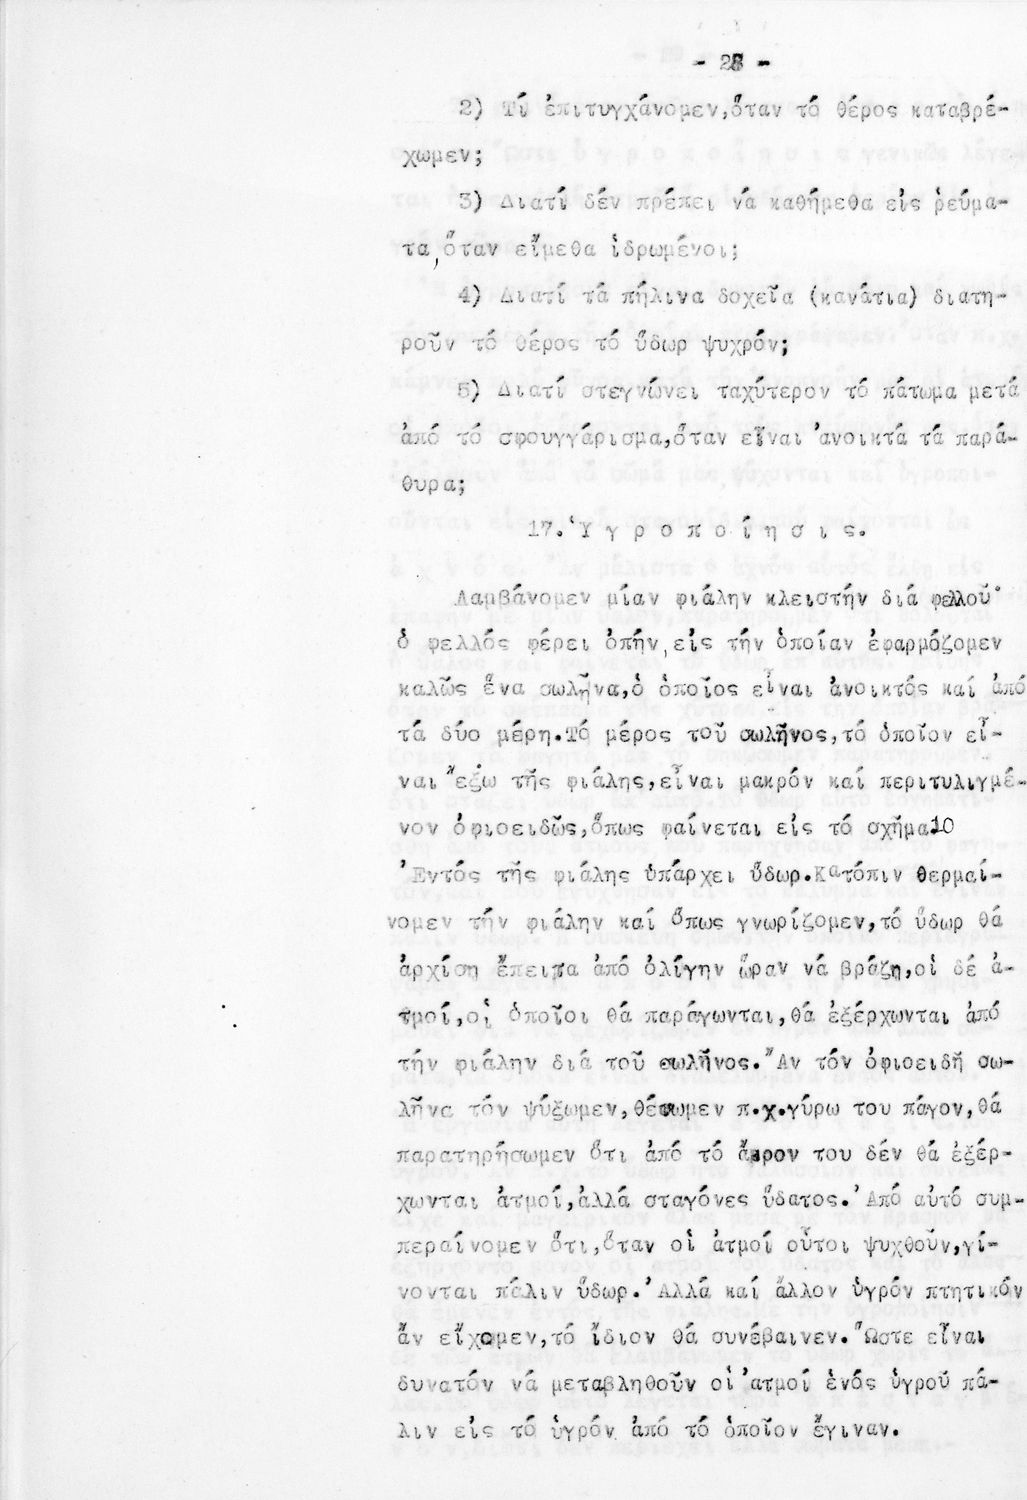 - 28 -
2) Τί ἐπιτυγχάνομεν,ὅταν τό θέρος καταβρέ-
χωμεν;
3) Διατί δέν πρέπει νά καθήμεθα εἰς ῥεύμα-
τα,ὅταν εἴμεθα ἱδρωμένοι;
4) Διατί τά πήλινα δοχεῖα (κανάτια) διατη-
ροῦν τό θέρος τό ὕδωρ ψυχρόν;
5) Διατί στεγνώνει ταχύτερον τό πάτωμα μετά
ἀπό τό σφουγγάρισμα,ὅταν εἶναι ἀνοικτά τά παρά-
θυρα;
17.Ὑ γ ρ ο π ο ί η σ ι ς.
Λαμβάνομεν μίαν φιάλην κλειστήν διά φελλοῦ·
ὁ φελλός φέρει ὀπήν,εἰς τήν ὁποίαν ἐφαρμόζομεν
καλῶς ἕνα σωλῆνα,ὁ ὁποῖος εἶναι ἀνοικτός καί ἀπό
τά δύο μέρη.Τό μέρος τοῦ σωλῆνος,τό ὁποῖον εἶ-
ναι ἔξω τῆς φιάλης,εἶναι μακρόν καί περιτυλιγμέ-
νον ὀφιοειδῶς,ὅπως φαίνεται εἰς τό σχῆμα10
Ἐντός τῆς φιάλης ὑπάρχει ὕδωρ.Κατόπιν θερμαί-
νομεν τήν φιάλην καί ὅπως γνωρίζομεν,τό ὕδωρ θά
ἀρχίση ἔπειτα ἀπό ὀλίγην ὥραν νά βράζη,οἱ δέ ἀ-
τμοί,οἱ ὁποῖοι θά παράγωνται,θά ἐξέρχωνται ἀπό
τήν φιάλην διά τοῦ σωλῆνος.Ἄν τόν ὀφιοειδῆ σω-
λῆνα τόν ψύξωμεν,θέσωμεν π.χ.γύρω του πάγον,θά
παρατηρήσωμεν ὅτι ἀπό τό ἄκρον του δέν θά ἐξέρ-
χωνται ἀτμοί,ἀλλά σταγόνες ὕδατος.Ἀπό αὐτό συμ-
περαίνομεν ὅτι,ὅταν οἱ ἀτμοί οὗτοι ψυχθοῦν,γί-
νονται πάλιν ὕδωρ.Ἀλλά καί ἄλλον ὑγρόν πτητικόν
ἄν εἴχομεν,τό ἴδιον θά συνέβαινεν.Ὥστε εἶναι
δυνατόν νά μεταβληθοῦν οἱ ἀτμοί ἑνός ὑγροῦ πά-
λιν εἰς τό ὑγρόν ἀπό τό ὁποῖον ἔγιναν.